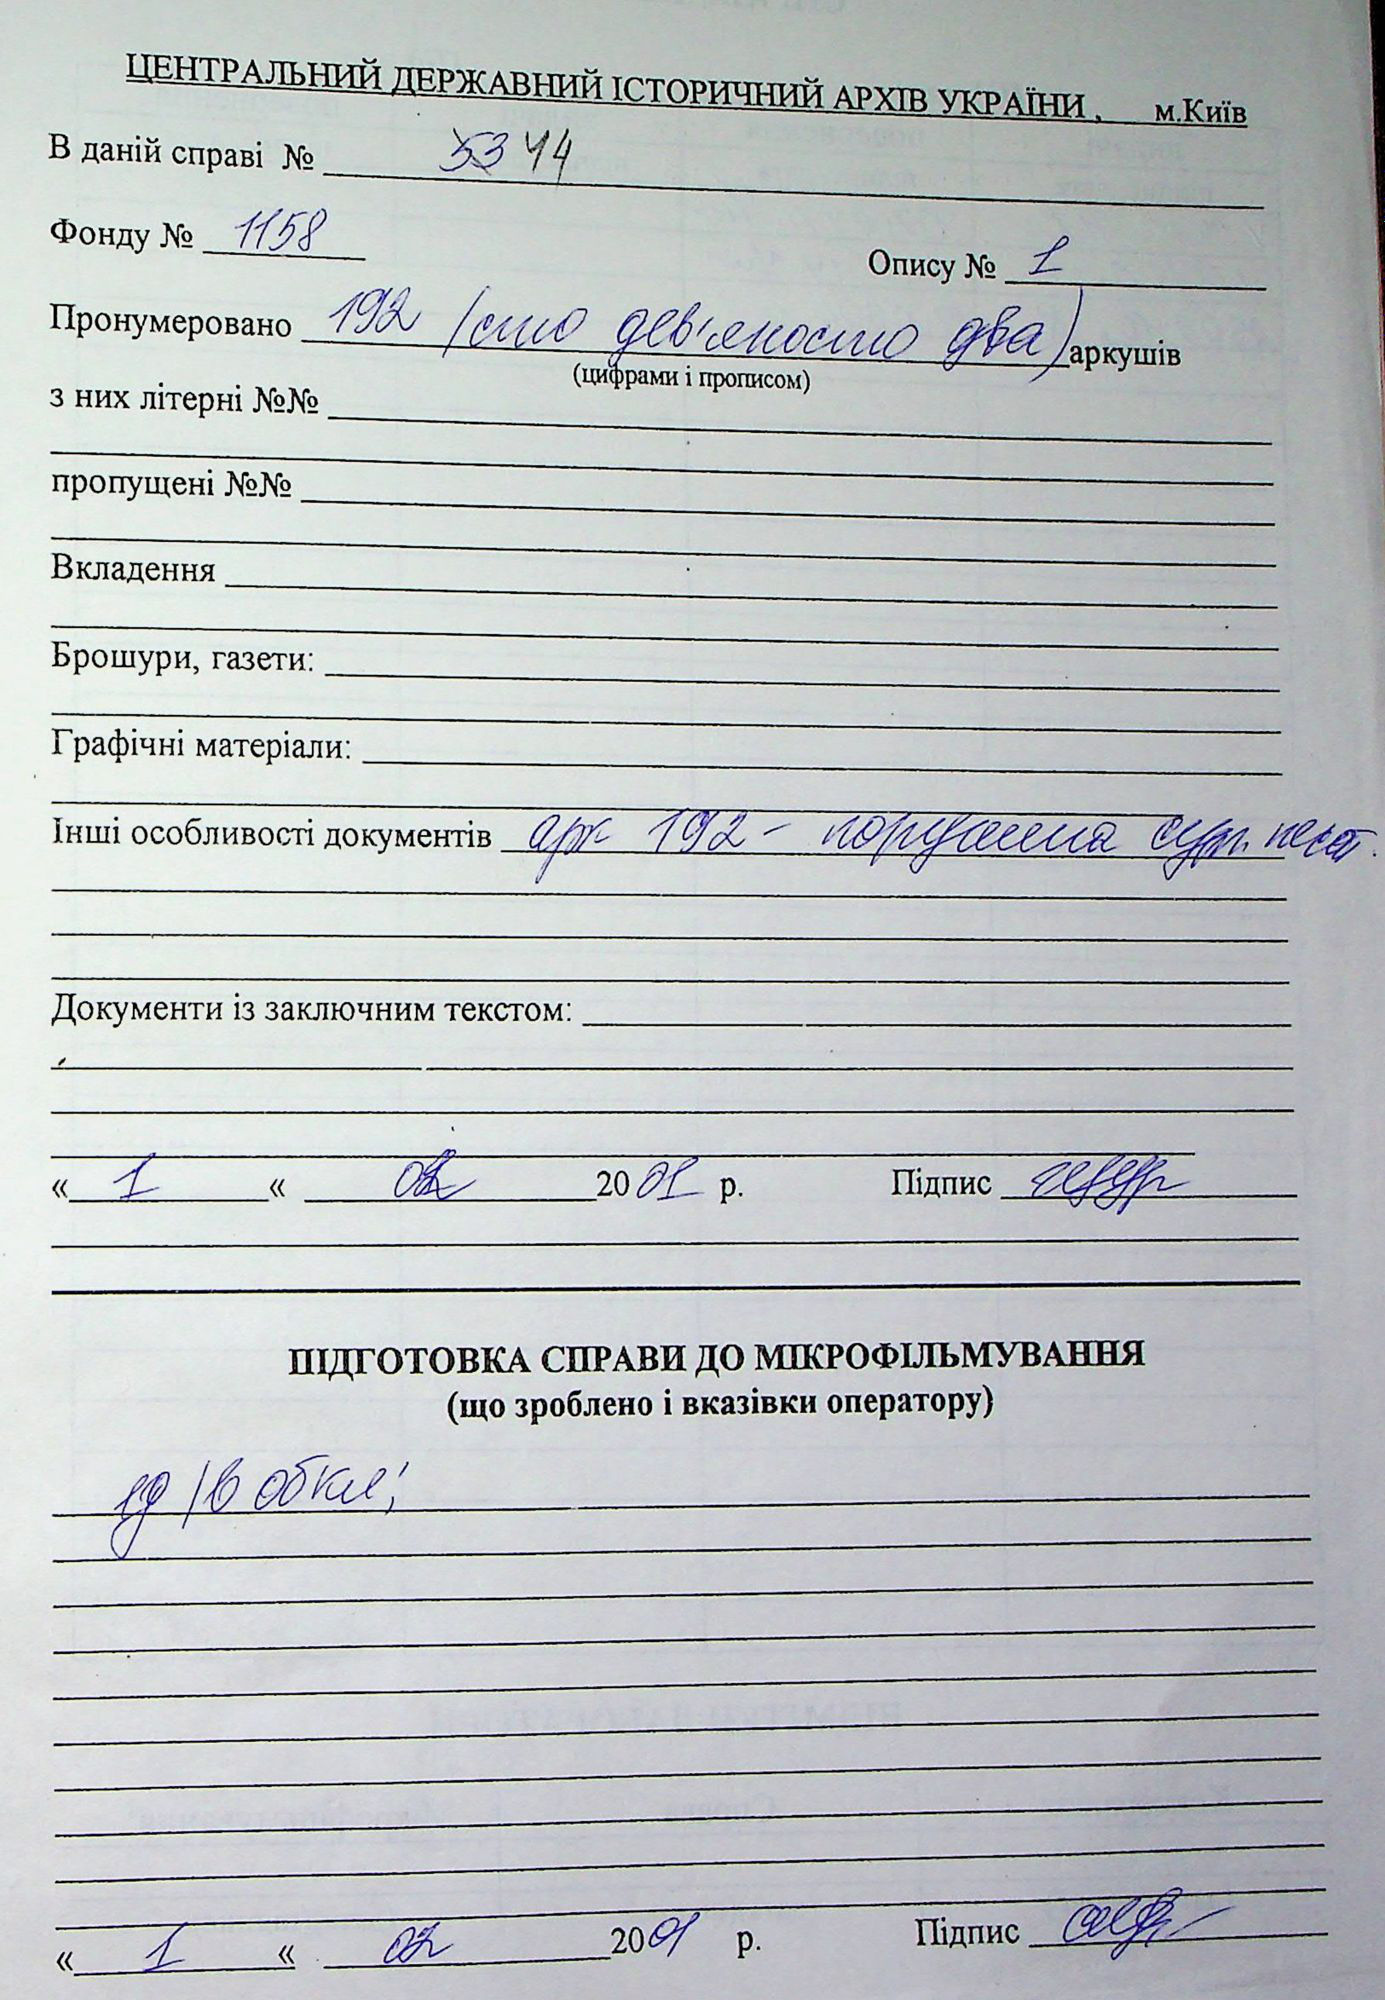 ЦЕНТРАЛЬНИЙ ДЕРЖАВНИЙ ІСТОРИЧНИЙ АРХІВ УКРАЇНИ , м.Київ
В даній справі № 53 44
Фонду № 1158
Опису № 1
Пронумеровано 192 (сто дев'яносто два) аркушів
(цифрами і прописом)
з них літерні №№
пропущені №№
Вкладення
Брошури, газети:
Графічні матеріали:
Інші особливості документів арк 192 - порушена
Документи із заключним текстом:
« 1 « 02 2001 р. Підпис
ПІДГОТОВКА СПРАВИ ДО МІКРОФІЛЬМУВАННЯ
(що зроблено і вказівки оператору)
« 1 « 02 2001 р. Підпис